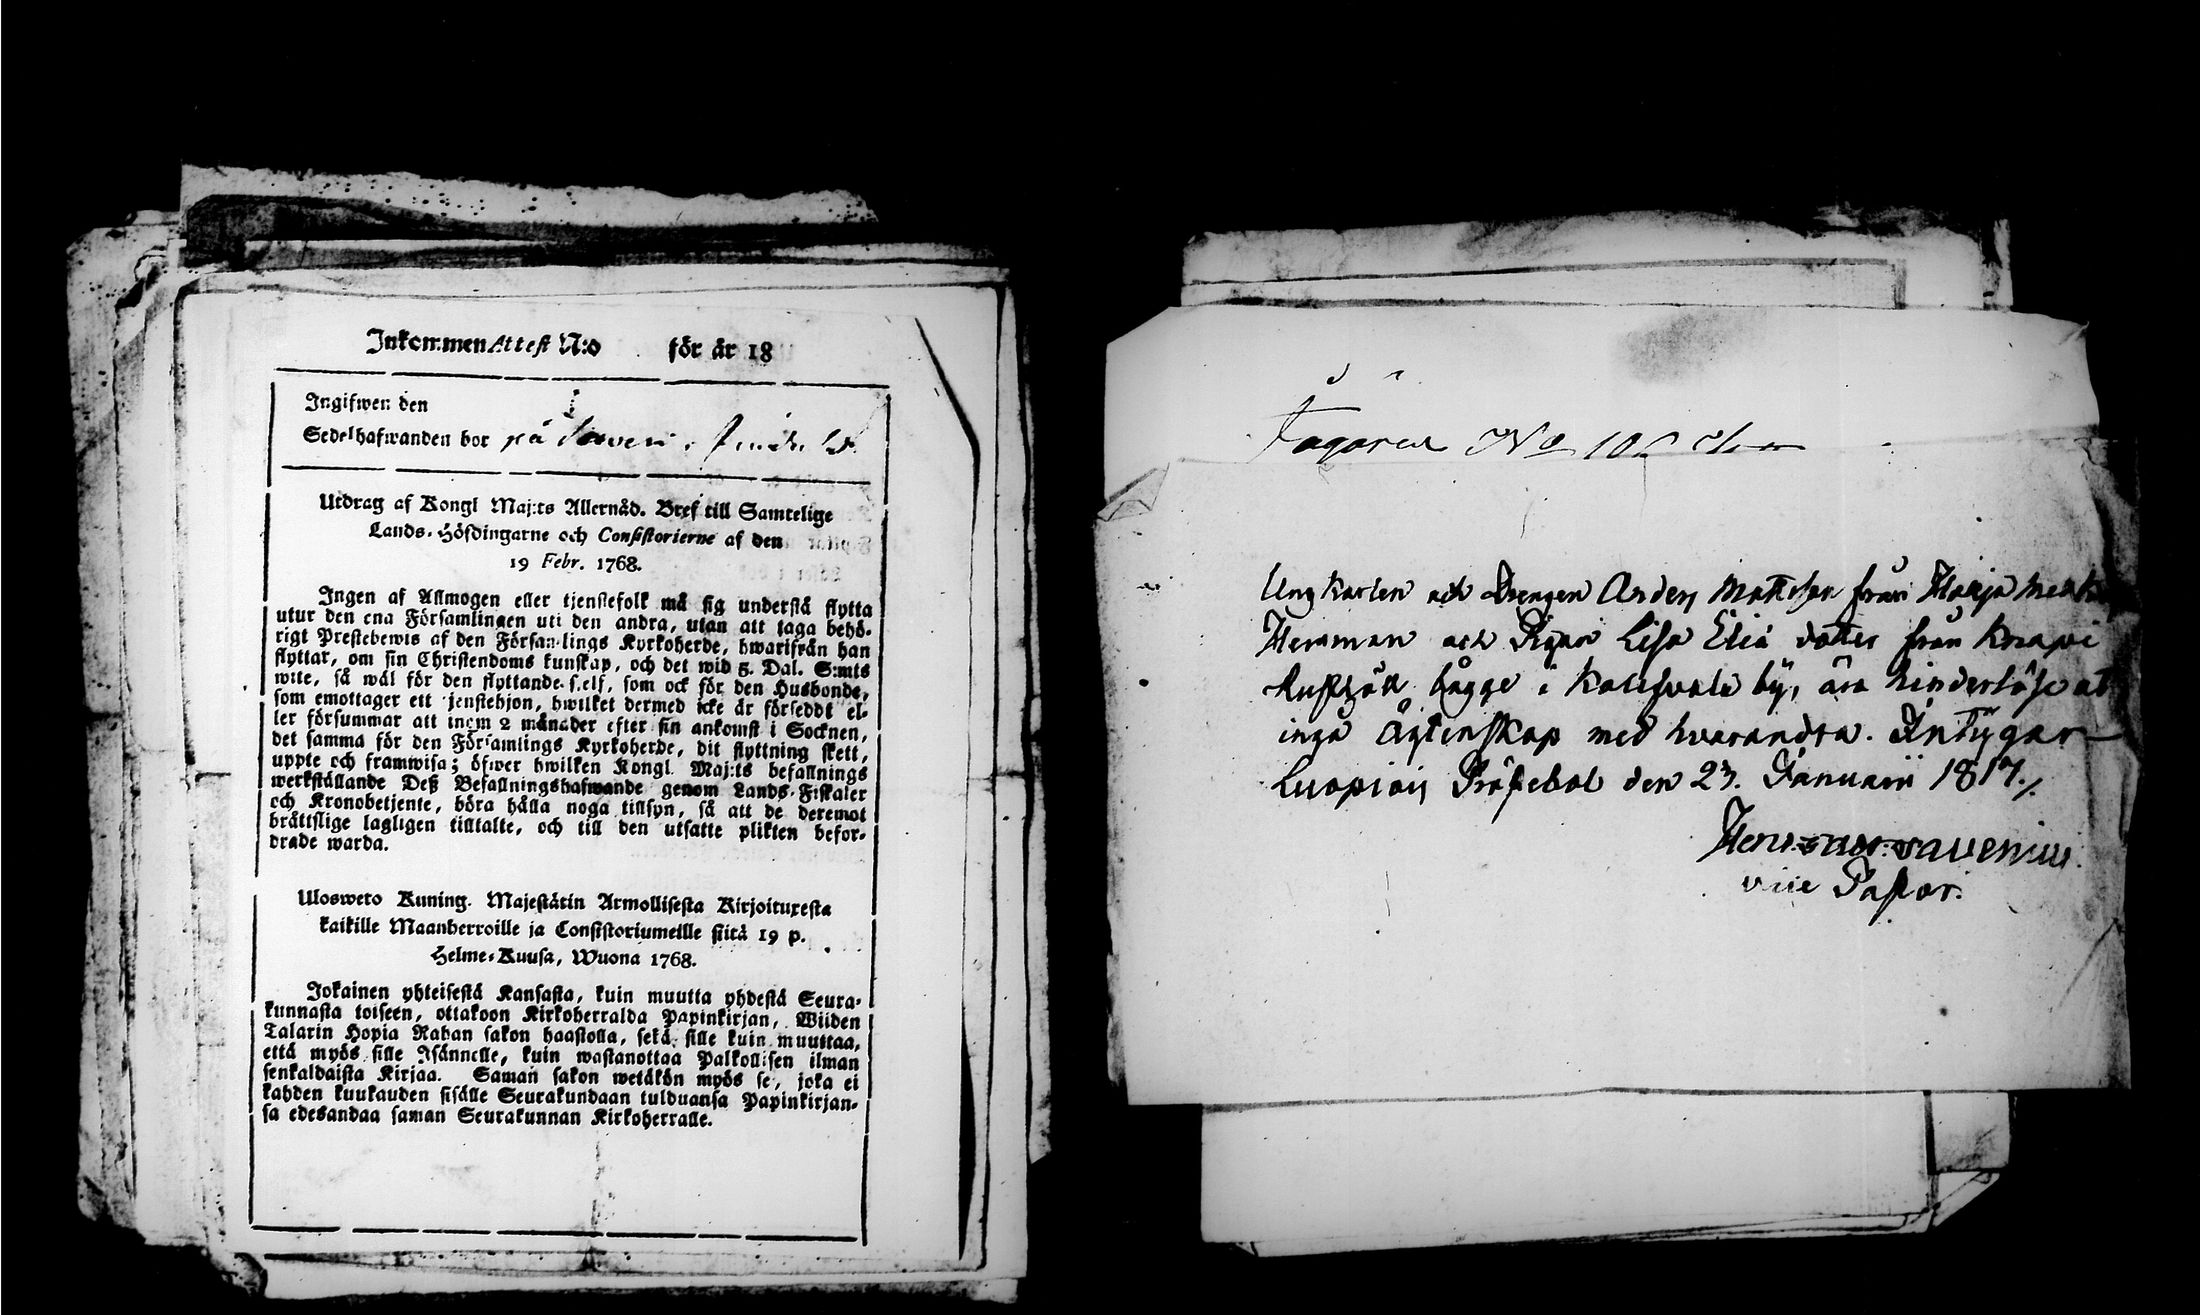 Inkommen Attest N:o för år 18
Ingifwen den
Sedelhafwanden bor på
Utdrag af Kongl Maj:ts Allernåd. Bref till Samtelige
Lands-Höfdingarne och Consistorierne af den
19 Febr. 1768.
Ingen af Allmogen eller tjenstefolk må sig understå flytta
utur den ena Församlingen uti den andra, utan att taga behö-
rigt Prestebewis af den Församlings Kyrkoherde, hwarifrån han
flyttar, om sin Christendoms kunskap, och det wid 5. Dal. S:mts
wite, så wäl för den flyttande self, som ock för den Husbonde,
som emottager ett tjenstehjon, hwilket dermed icke är försedd! el-
ler försummar att inom 2 månader efter sin ankomst i Socknen,
det samma för den Församlings Kyrkoherde, dit flyttning skett,
uppte och framwisa; öfwer hwilken Kongl. Maj:ts befallnings
werkställande Deß Befallningshafwande genom Lands-Fiskaler
och Kronobetjente, böra hålla noga tillsyn, så att de deremot
bråttslige lagligen tilltalte, och till den utsatte plikten befor-
drade warda.
Ulosweto Kuning. Majestätin Armollisesta Kirjoituxesta
kaikille Maanherroille ja Consistoriumeillle siitä 19 p.
Helme-Kuusa, Wuona 1768.
Jokainen yhteisestä Kansasta, kuin muutta yhdestä Seura-
kunnasta toiseen, ottakoon Kirkoherralda Papinkirjan, Wiiden
Talarin Hopia Rahan sakon haastolla, sekä sille kuin muuttaa,
että myös sille Isännelle, kuin wastanottaa Palkollisen ilman
senkaldaista Kirjaa. Saman sakon wetäkön myös se, joka ei
kahden kuukauden sisälle Seurakundaan tulduansa Papinkirjan-
sa edesandaa saman Seurakunnan Kirkoherralle.
No
Ung Karlen och Drengen Anders Mattsson från
Herman och Pigan Lisa Elia dotter från Knapi
bägge i by, äro hinderlöse at
ingå Ägtenskap med hvarandra. Intygar
Luopiois Prästebol den 23. Januarii 1817./.
vice Pastor.